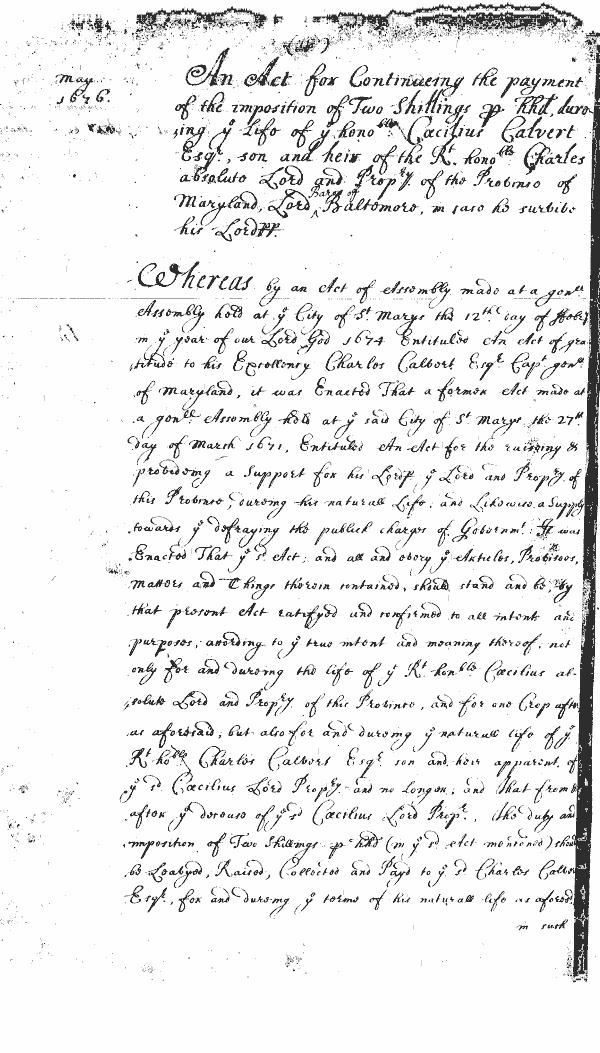 May
1676.
An Act for Continueing the payment
of the imposition of Two Shillings p hhd, dure-
ing ye Life of ye honoble Cæcilius Calvert
Esqr., son and heir of the Rt. honoble Charles
absolute Lord and Propry. of the Province of
Maryland, Lord Baron of Baltemore, in case he survive
his Lordpp.
Whereas by an Act of Assembly made at a genll
Assembly held at ye City of St. Marys the 12th day of
in ye year of our Lord God 1674 Entituled An Act of gra-
titude to his Excellency Charles Calvert Esqr. Capt. genll
of Maryland, it was Enacted That a former Act made at
a genll Assembly held at ye said City of St. Marys the 27th
day of March 1671, Entituled An Act for the raiseing &
provideing a Support for his Lordp ye Lord and Propry. of
this Province, dureing his naturall Life; and Likewise a Supply
towards ye defraying the publick charges of Governmt. It was
Enacted That ye sd Act; and all and every ye Articles, Provisoes,
matters and Things therein contained, should stand and be, by
that present Act ratifyed and confirmed to all intents and
purposes; according to ye true intent and meaning thereof; not
only for and dureing the life of ye Rt. honble Cæcilius ab-
solute Lord and Propry. of this Province, and for one Crop after
as aforesaid; but also for and dureing ye naturall life of ye
Rt. hoble Charles Calvert Esqr. son and heir apparent of
ye sd Cæcilius Lord Propry. and no longer; and that from &
after ye decease of ye sd Cæcilius Lord Propr., the duty and
imposition of Two Shillings p hhd (in ye sd Act mentioned) should
be Leavyed, Raised, Collected and Payd to ye sd Charles Calvert
Esqr., for and dureing ye terme of his naturall life as aforesd.
in such